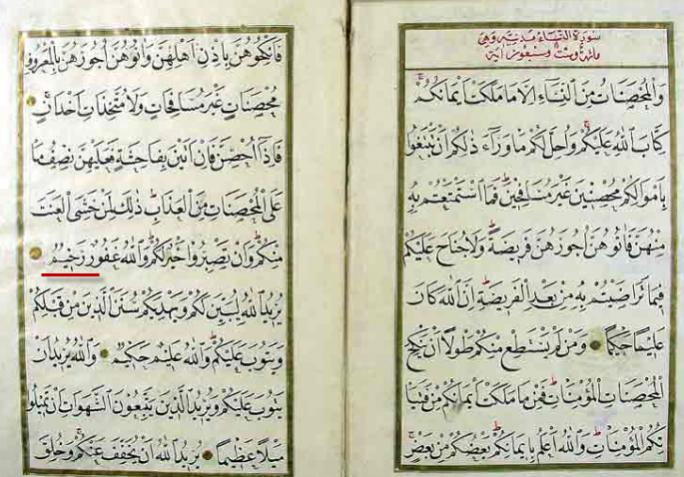 سورة النساء مدنية وهي
مائة وست وسبعون اية
وَالْمُحْصَنَاتُ مِنَ النِّسَاءِ اِلَّا مَا مَلَكَتْ اَيْمَانُكُمْ
كِتَابَ اللهِ عَلَيْكُمْ وَاُحِلَّ لَكُمْ مَا وَرَاءَ ذٰلِكُمْ اَنْ تَبْتَغُوا
بِاَمْوَالِكُمْ مُحْصِنِينَ غَيْرَ مُسَافِحِينَ فَمَا اسْتَمْتَعْتُمْ بِهِ
مِنْهُنَّ فَاٰتُوهُنَّ اُجُورَهُنَّ فَرِيضَةً وَلَا جُنَاحَ عَلَيْكُمْ
فِيمَا تَرَاضَيْتُمْ بِهِ مِنْ بَعْدِ الْفَرِيضَةِ اِنَّ اللهَ كَانَ
عَلِيمًا حَكِيمًا وَمَنْ لَمْ يَسْتَطِعْ مِنْكُمْ طَوْلًا اَنْ يَنْكِحَ
الْمُحْصَنَاتِ الْمُؤْمِنَاتِ فَمِنْ مَا مَلَكَتْ اَيْمَانُكُمْ مِنْ فَتَيَا
تِكُمُ الْمُؤْمِنَاتِ وَاللهُ اَعْلَمُ بِاِيمَانِكُمْ بَعْضُكُمْ مِنْ بَعْضٍ
فَانْكِحُوهُنَّ بِاِذْنِ اَهْلِهِنَّ وَاٰتُوهُنَّ اُجُورَهُنَّ بِالْمَعْرُوفِ
مُحْصَنَاتٍ غَيْرَ مُسَافِحَاتٍ وَلَا مُتَّخِذَاتِ اَخْدَانٍ
فَاِذَا اُحْصِنَّ فَاِنْ اَتَيْنَ بِفَاحِشَةٍ فَعَلَيْهِنَّ نِصْفُ مَا
عَلَى الْمُحْصَنَاتِ مِنَ الْعَذَابِ ذٰلِكَ لِمَنْ خَشِيَ الْعَنَتَ
مِنْكُمْ وَاَنْ تَصْبِرُوا خَيْرٌ لَكُمْ وَاللهُ غَفُورٌ رَحِيمٌ
يُرِيدُ اللهُ لِيُبَيِّنَ لَكُمْ وَيَهْدِيَكُمْ سُنَنَ الَّذِينَ مِنْ قَبْلِكُمْ
وَيَتُوبَ عَلَيْكُمْ وَاللهُ عَلِيمٌ حَكِيمٌ وَاللهُ يُرِيدُ اَنْ
يَتُوبَ عَلَيْكُمْ وَيُرِيدُ الَّذِينَ يَتَّبِعُونَ الشَّهَوَاتِ اَنْ تَمِيلُوا
مَيْلًا عَظِيمًا يُرِيدُ اللهُ اَنْ يُخَفِّفَ عَنْكُمْ وَخُلِقَ